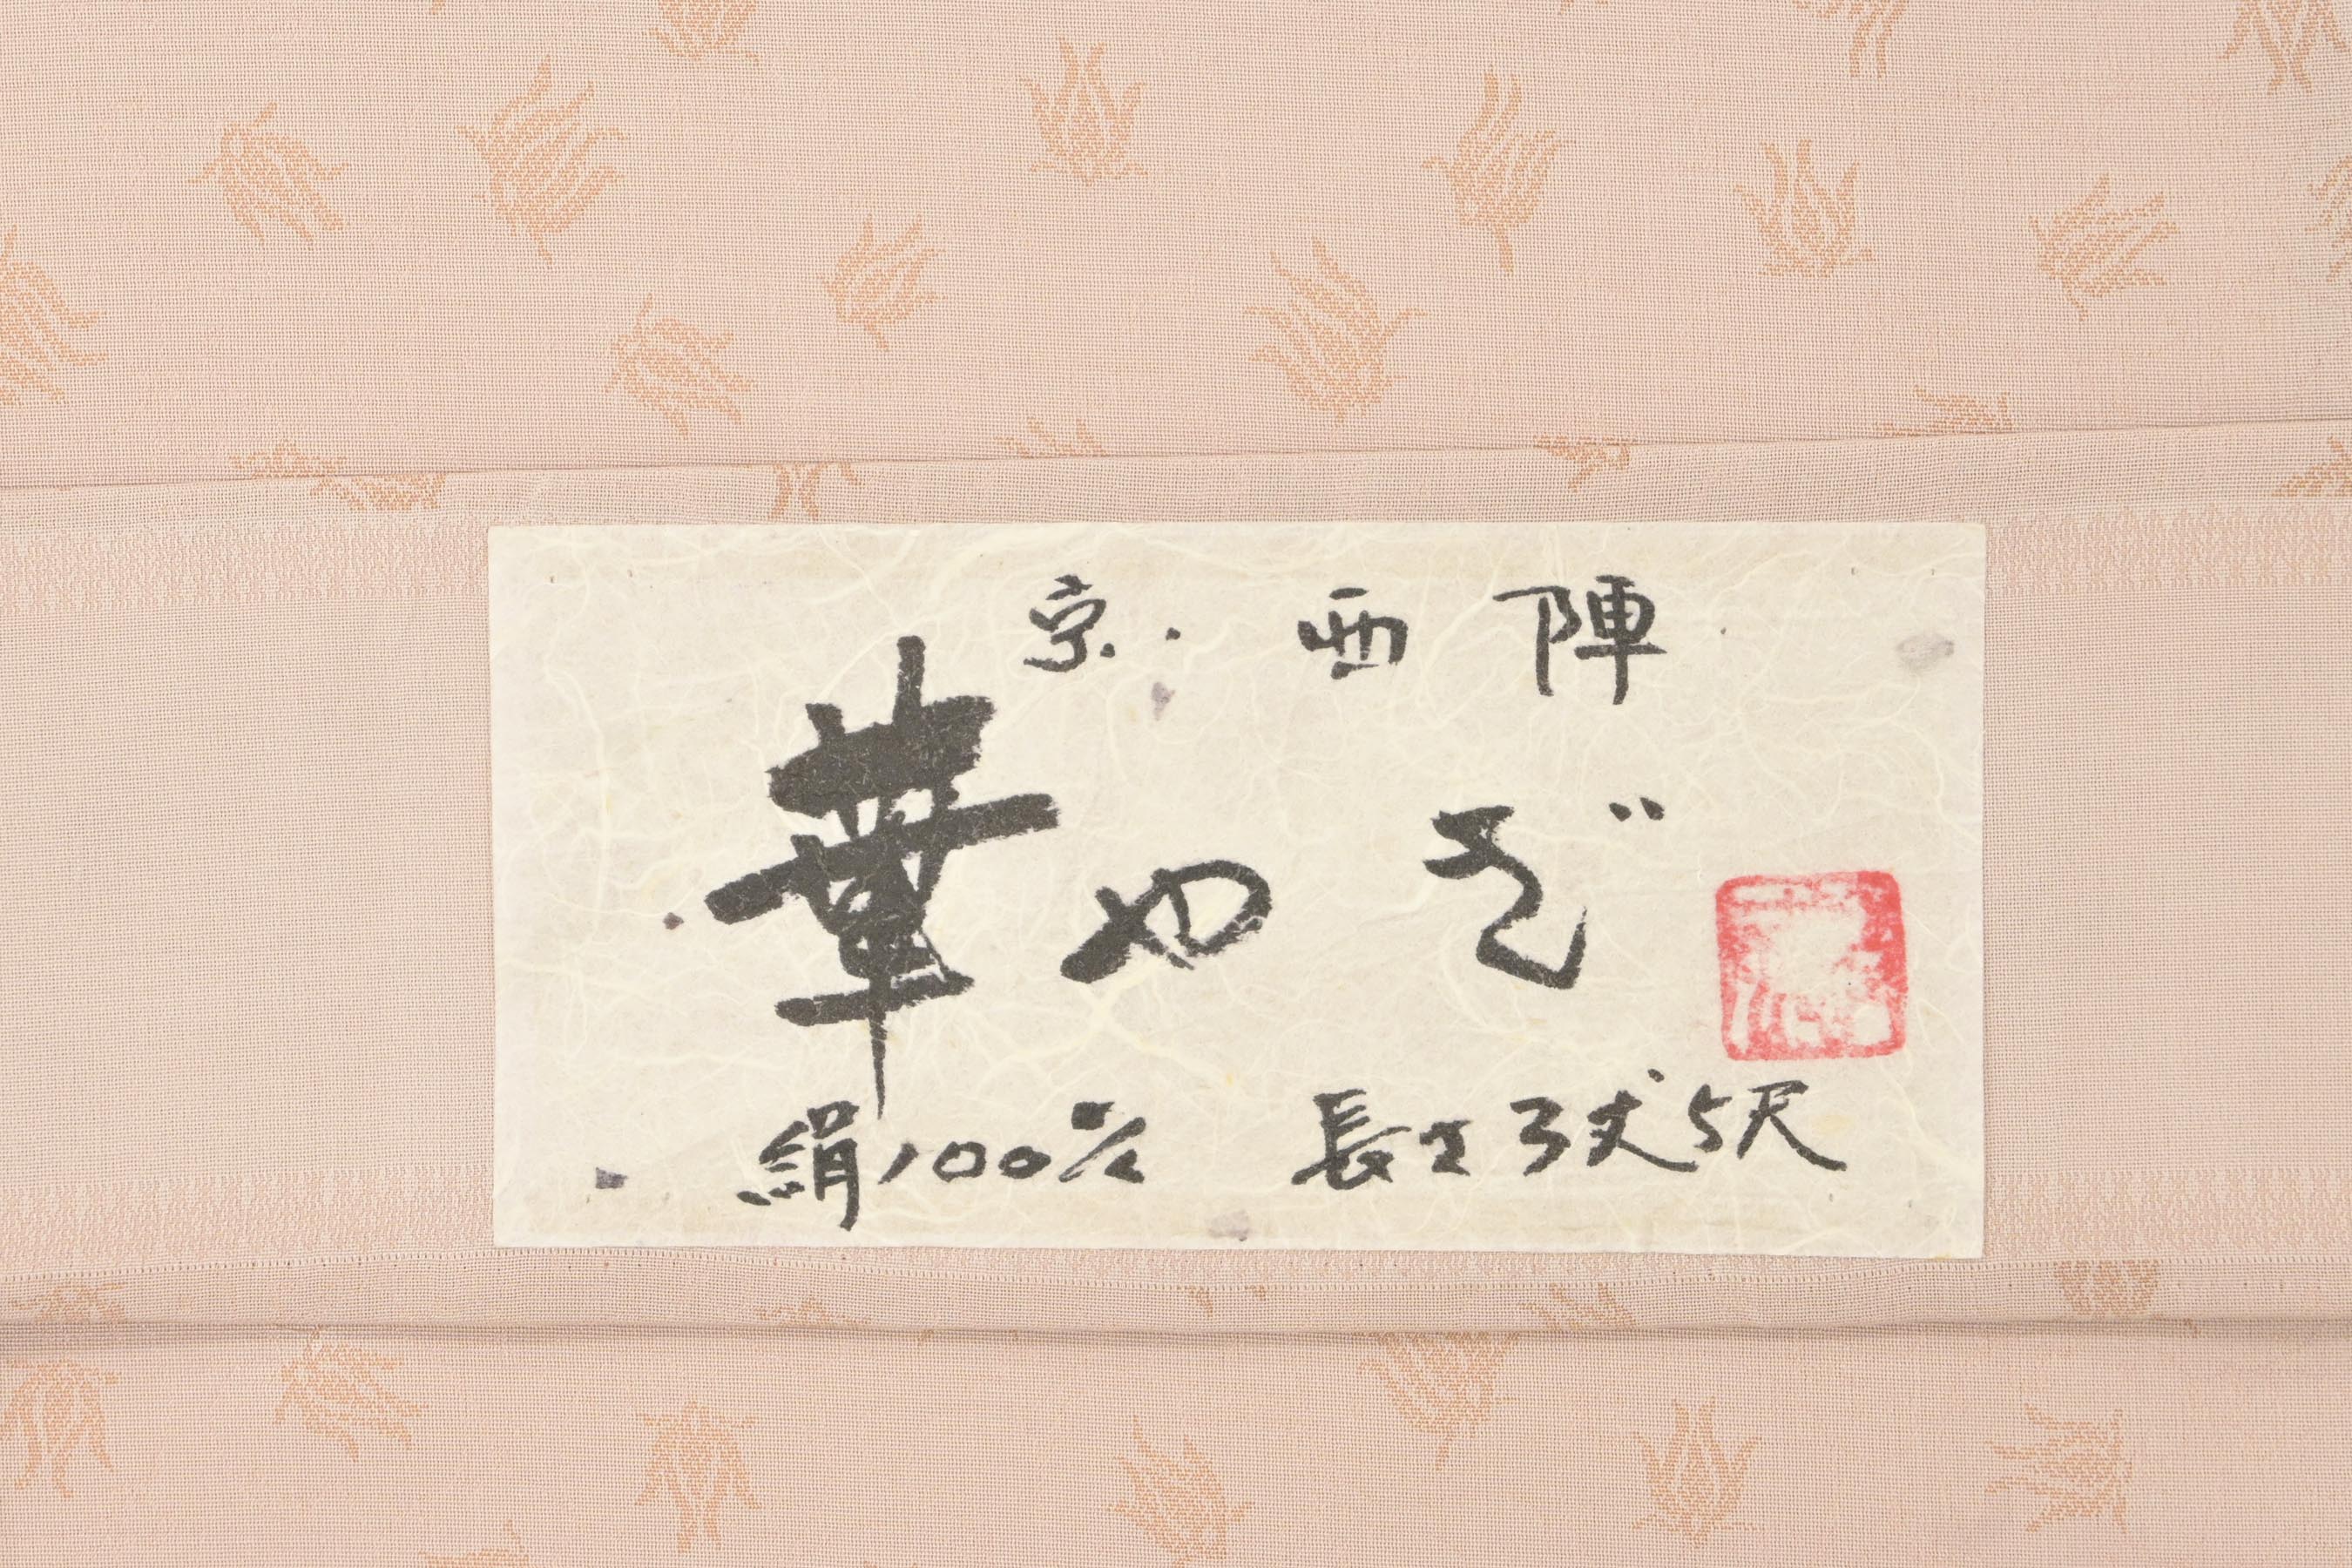 京・西陣
華やぎ
絹100% 長さ3丈5尺